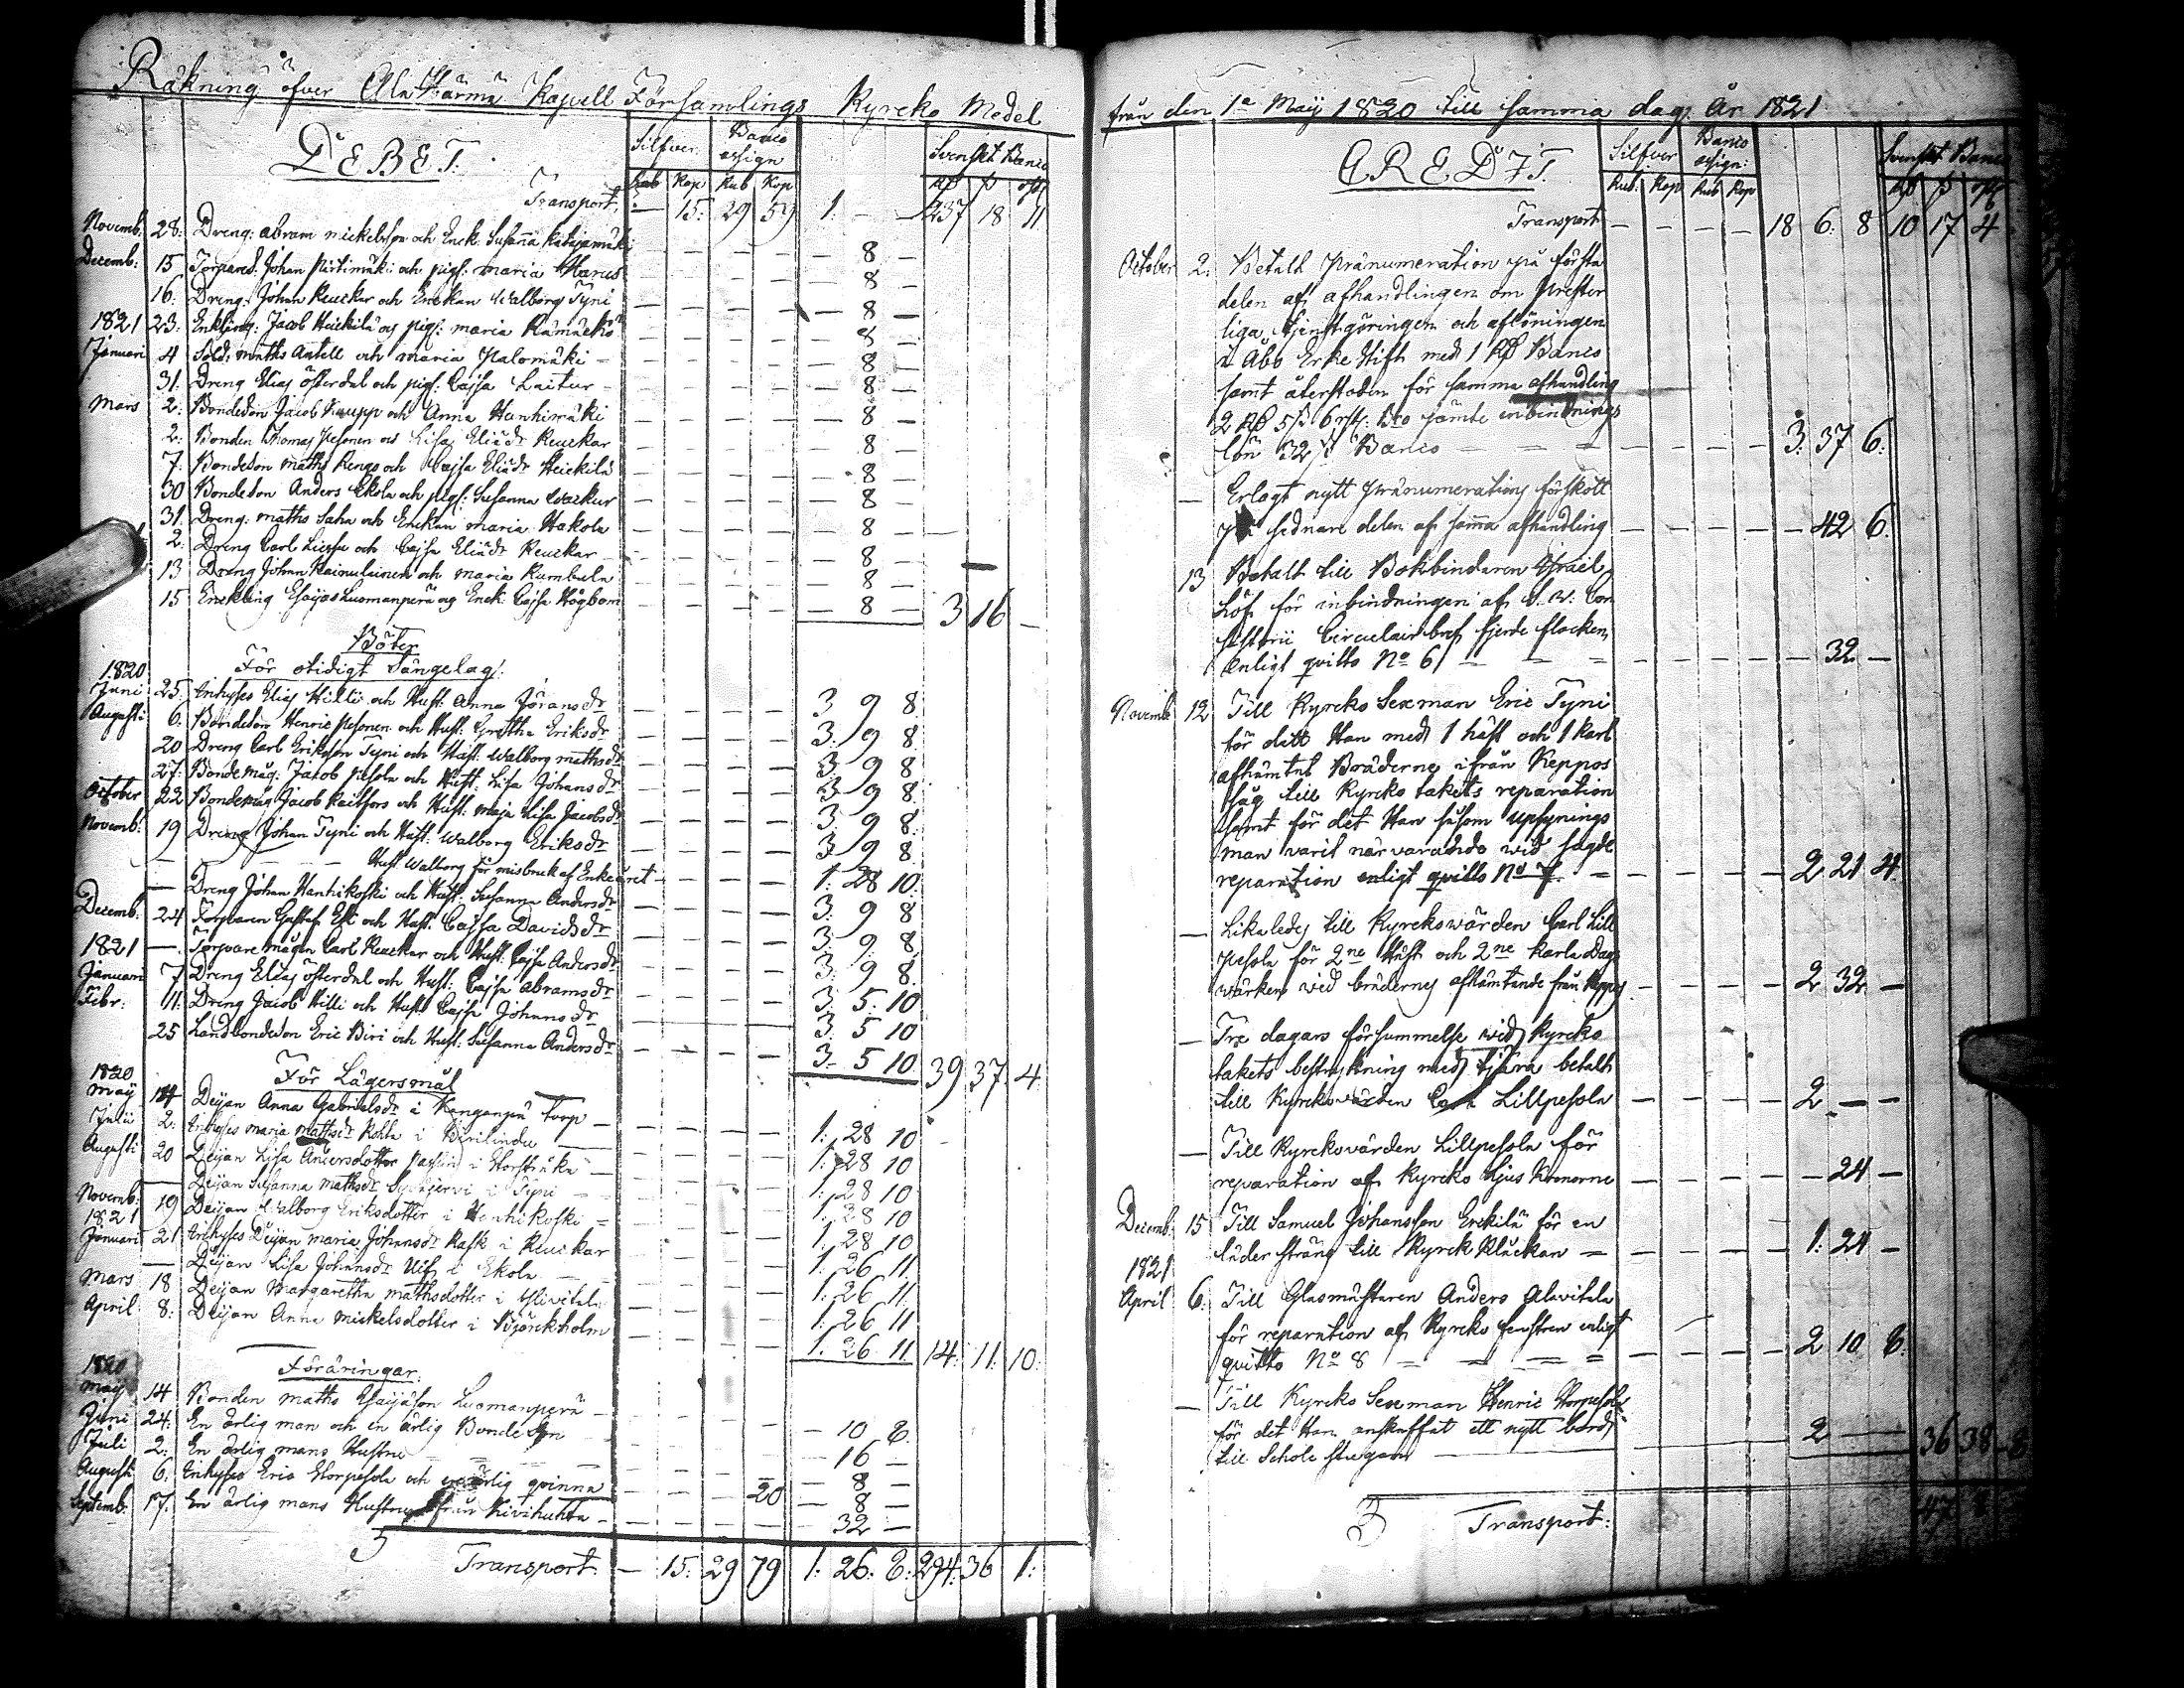 Räkning öfver Ala Härmä Kapell Församlings Kyrcko Medel
DEBET.
Silfver. Banco assign Svenskt Banco
Rub Kop Rub Kop Rß ß rst
Transport. — 15. 29 59 1. — — 237 18 11.
Novemb: 28. Dreng: abram mickelsson och Enck. Susanna Katajamäki — — — — — 8 —
Decemb: 15 Torpared: Johan Pirtimäki och pig: maria Harus — — — — — 8 —
16. Dreng: Johan Keuckar och Enckan Walborg Tyni — — — — — 8 —
1821 23. Enkling: Jacob Heickilä och pig: maria Rämäckö — — — — — 8 —
Januari 4 Sold: maths Antell och maria Palomäki — — — — — 8 —
31. Dreng Elias österdal och pig: Cajsa Laitur — — — — — 8 —
Mars 2. Bondeson Jacob Kaupp och Anna Hanhimäki — — — — — 8 —
2. Bonden Thomas Pesonen och Lisa Eliædr Keuckar — — — — — 8 —
7. Bondeson maths Rengo och Cajsa Eliædr Heickilä — — — — — 8 —
30 Bondeson Anders Ekola och pig: Susanna — — — — — 8 —
31. Dreng: maths Saha och Enckan maria Hakola — — — — — 8 —
2. Dreng Carl och Cajsa Eliædr Keuckar — — — — — 8 —
13 Dreng Johan Kainulainen och maria Kumbula — — — — — 8 —
15 Enckling Esaijas Luomanperä och Enck: Cajsa Högbom — — — — — 8 — 3 16 —
Böter
För otidigt Sängelag:
1820
Juni 25. Inhyses Elias Hilli och Hust: Anna Jöransdr — — — — 3 9 8
Augusti 6. Bondeson Henric Pesonen och Hust: Gretha Eriksdr — — — — 3. 9 8
20 Dreng Carl Eriksson Tyni och Hust: Walborg mathsdr — — — — 3. 9 8
27. Bondemåg: Jacob Pesola och Hust: Lisa Johansdr — — — — 3 9 8
October 22 Bondemåg Jacob Kaitfors och Hust: Maja Lisa Jacobsdr — — — — 3. 9 8.
Novemb: 19 Dreng Johan Tyni och Hust: Walborg Eriksdr — — — — 3 9 8.
— — — Hust Walborg för misbruk af Enkeåret — — — — 1. 28 10.
— Dreng Johan Hanhikoski och Hust: Susanna Andersdr — — — — 3. 9 8
Decemb: 24 Torparen Gustaf Est och Hust. Cajsa Davidsdr — — — — 3. 9. 8
1821 — Torpare mågen Carl Keuckar och Hust: Cajsa Andersdr — — — — 3. 9 8.
Januari 7 Dreng Elias österdal och Hust: Cajsa abramsdr — — — — 3. 5. 10
Febr: 11. Dreng Jacob Hilli och Hust Cajsa Johansdr — — — — 3. 5 10
25 Landbondeson Eric Biri och Hust: Susanna Andersdr — — — — 3. 5 10. 39. 37. 4.
För Lägersmål
1820
Maÿ 14 Deijan Anna Gabrielsdr i Kanganpä torp — — — — 1: 28 10
Julii 2. Inhyses maria mathsdr Kohla i — — — — 1. 28 10
Augusti 20 Deijan Lisa Andersdotter i — — — — 1. 28 10
— Deijan Susanna mathsdr Syväjervi i Tyni — — — — 1. 28 10
Novemb: 19 Deijan Walborg Eriksdotter i Hanhikoski — — — — 1. 28 10
1821
Januari 21 Inhyses Deijan maria Johansdr Kask i Keuckar — — — — 1. 26 11.
— Deijan Lisa Johansdr i Ekola — — — — 1. 26 11.
Mars 18 Deijan Margaretha mathsdotter i Ylivitala — — — — 1. 26 11
April 8. Deijan Anna mickelsdotter i Björckholm — — — — 1. 26 11. 14. 11. 10.
Föräringar.
1820
Maÿ 14 Bonden maths Esaijæson Luomanperä — — — — — 10 8.
Juni 24. En ärlig man och en ärlig Bonde Son — — — — — 16 —
Juli 2. En ärlig mans Hustru — — — — — 8 —
Augusti 6. Inhyses Eric Storpesola och en ärlig qvinna — — — 20 — 8 —
Septemb: 17. En ärlig mans Hustru från Kivikuhta — — — — — 32 —
Transport. — 15. 29 79 1. 26. 8. 294. 36 1.
från den 1a Maij 1820 till samma dag År 1821
CREDIT.
Silfver Banco assign: Svenskt Banco
Rub. Kop Rub Kop Rß ß rst
Transport — — — — 18 6. 8 10 17 4
October 2. Betalt pränumeration på första
delen af afhandlingen om Prester
liga tjenstgöringen och aflöningen
i Åbo Erke Stift med 1 Rß Banco
samt återstoden för samma afhandling
2 Rß 5 ß 6 rst. Bco jämte inbindnings
lön 32 ß Banco — — — — 3. 37 6.
— Erlagt nytt pränumerations förskott
på sednare delen af samma afhandling — — — — — 42 6.
13 Betalt till Bokbindaren Israel
Löf för inbindningen af C. W. Con
sistorii Circulairbref fjerde flocken
enligt qvitto No 6 — — — — — 32 —
Novemb 12 Till Kyrcko Sexman Eric Tyni
för dett Han med 1 häst och 1 karl
afhämtat Bräderne ifrån Keppos
såg till Kyrcko takets reparation
samt för det Han såsom upsynings
man varit närvarande wid sagde
reparation enligt qvitto No 7. — — — — 2 21 4.
— Likaledes till Kyrckovärden Carl Lill
pesola för 2ne Häst och 2ne karla Dags
värcken wid brädernes afhämtande från Keppos — — — — 2 32 —
— Tre dagars försummelse wid Kyrcko
takets bestrykning med tjära betalt
till Kyrckovärden Carl Lillpesola — — — — 2 — —
— Till Kyrckovärden Lillpesola för
reparation af Kyrcko Ljus Kronorne — — — — — 24 —
Decemb: 15 Till Samuel Johansson Erckilä för en
läder sträng till Kyrck Kluckan — — — — 1. 24 —
1821
April 6. Till Glasmästaren Anders Alavitala
för reparation af Kyrcko fenstren enligt
qvitto No 8 — — — — 2 10 8.
— Till Kyrcko Sexman Henric Storpesola
för det Han anskaffat ett nytt bord
till Schole stugan — 2 — — 36 38 8
Transport: 47 8